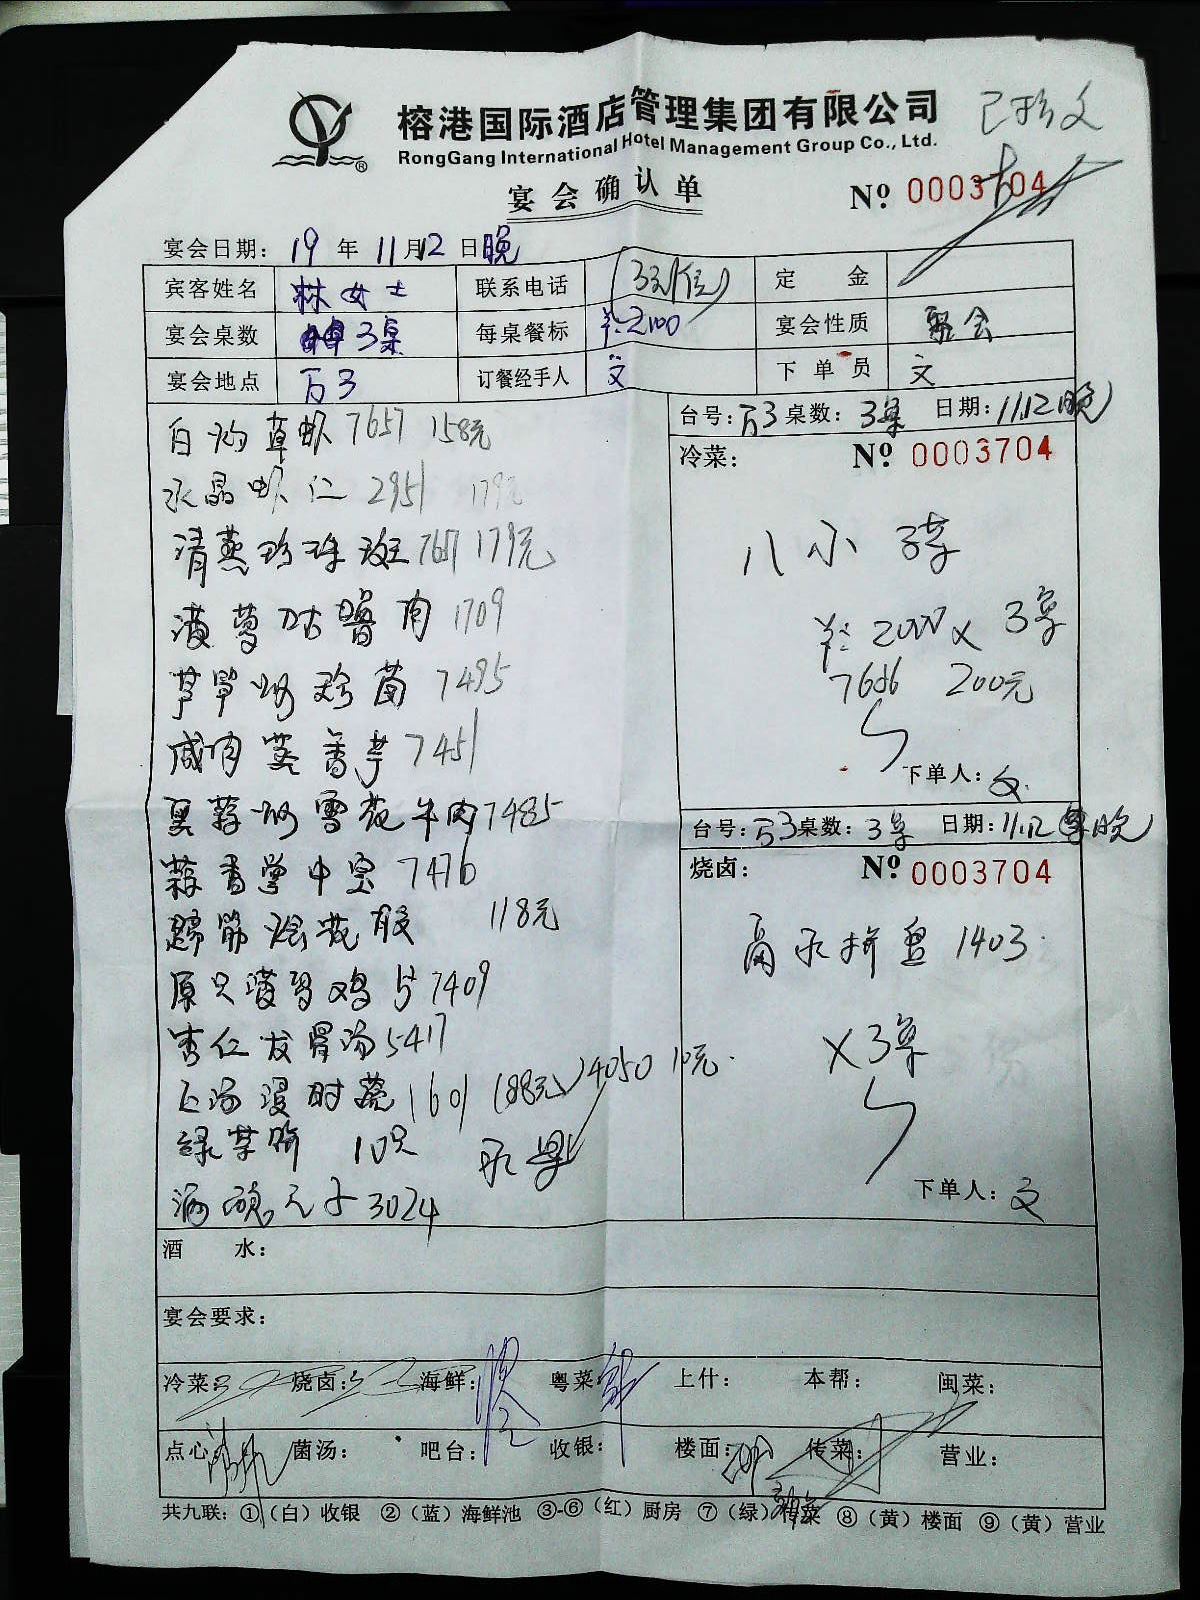 榕港国际酒店管理集团有限公司
RongGang International Hotel Management Group Co., Ltd.
宴会确认单
№ 0003704
宴会日期: 19 年 11 月 12 日 晚
宾客姓名 林女士 联系电话 定 金
宴会桌数 3桌 每桌餐标 2100 宴会性质 聚会
宴会地点 万3 订餐经手人 文 下 单 员 文
白灼草虾 7657 158元
水晶虾仁 2951 179元
清蒸珍珠斑 7617 179元
菠萝咕噜肉 1709
芦笋炒珍菌 7495
咸肉蒸香芋 7451
黑蒜炒雪花牛肉 7485
蒜香掌中宝 7476
蹄筋烩花胶 118元
原只菠萝鸡 7409
杏仁龙骨汤 5417
上汤浸时蔬 1601 (88元) 4050 10元
绿茶饼 10只
酒酿元子 3024
台号: 万3 桌数: 3桌 日期: 11.12 晚
冷菜: № 0003704
八小碟
2000 x 3桌
7656 200元
下单人: 文
台号: 万3 桌数: 3桌 日期: 11.12 晚
烧卤: № 0003704
拼盘 1403
X 3桌
下单人: 文
酒 水:
宴会要求:
冷菜: 烧卤: 海鲜: 粤菜: 上什: 本帮: 闽菜:
点心: 菌汤: 吧台: 收银: 楼面: 传菜: 营业:
共九联: ①(白) 收银 ②(蓝) 海鲜池 ③-⑥(红) 厨房 ⑦(绿) 传菜 ⑧(黄) 楼面 ⑨(黄) 营业